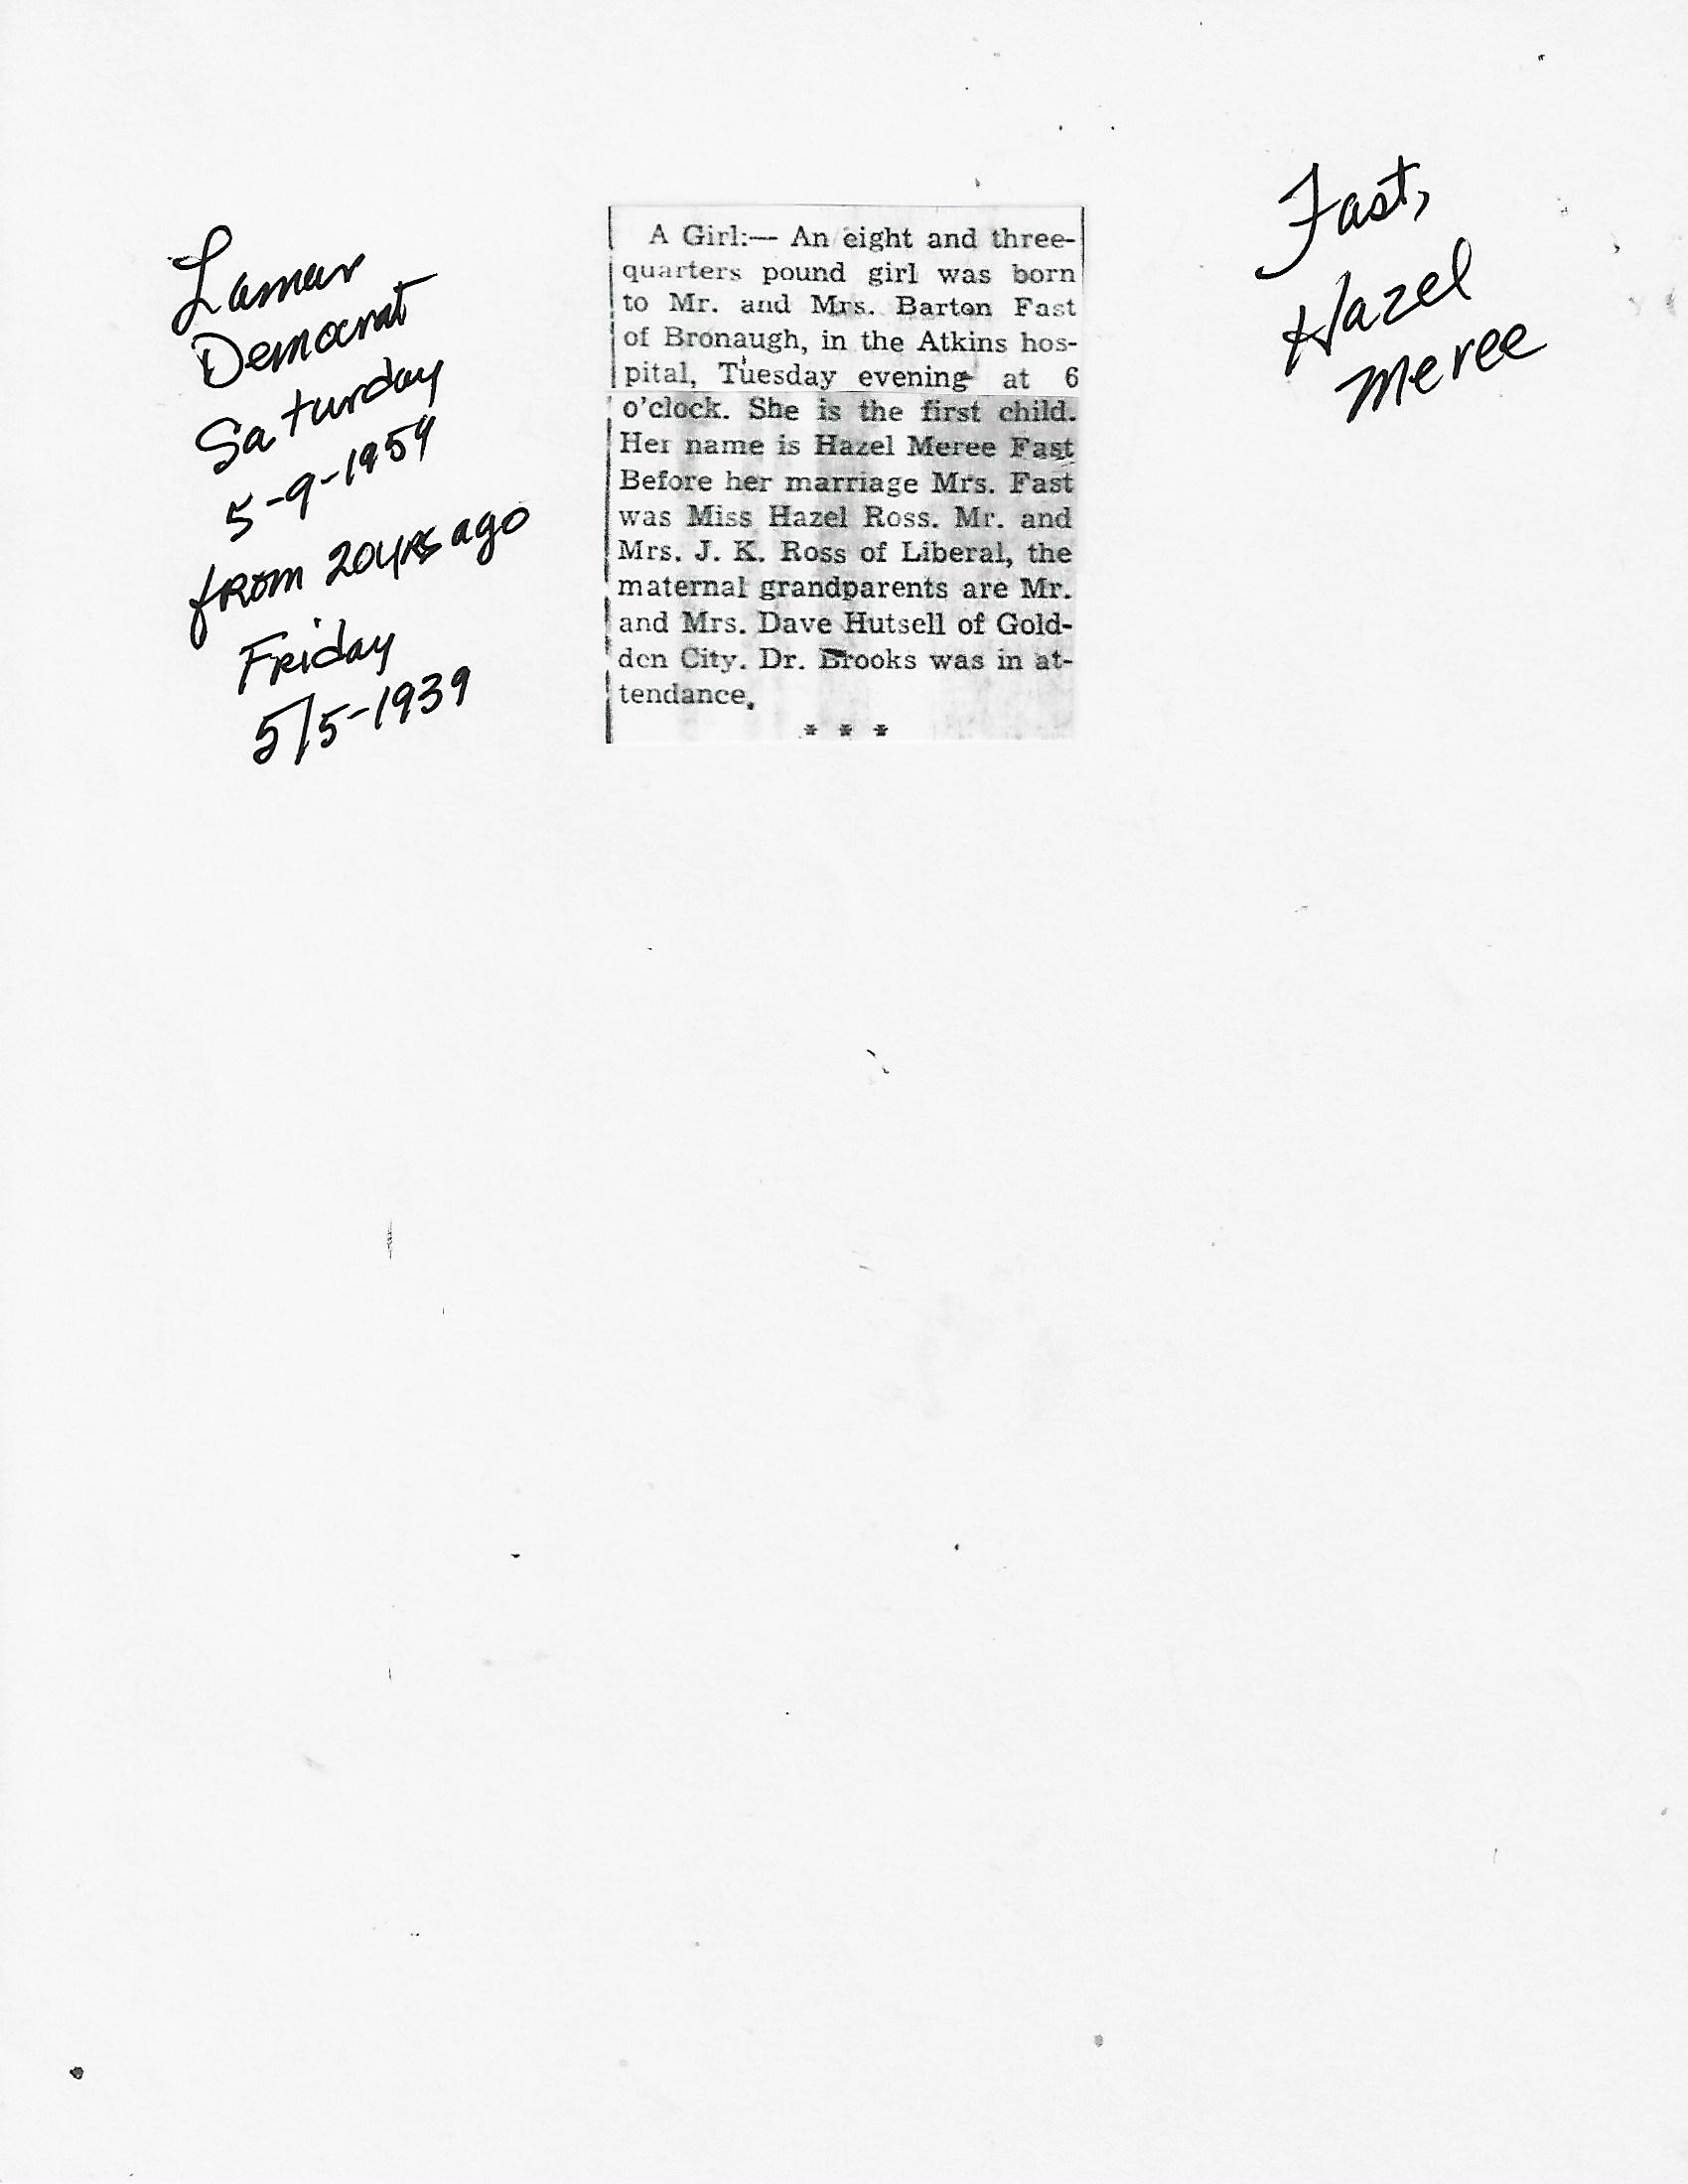 Lamar
Democrat
Saturday
5-9-1959
from 20yrs ago
Friday
5/5-1939
A Girl:— An eight and three-
quarters pound girl was born
to Mr. and Mrs. Barton Fast
of Bronaugh, in the Atkins hos-
pital, Tuesday evening at 6
o'clock. She is the first child.
Her name is Hazel Meree Fast
Before her marriage Mrs. Fast
was Miss Hazel Ross. Mr. and
Mrs. J. K. Ross of Liberal, the
maternal grandparents are Mr.
and Mrs. Dave Hutsell of Gold-
den City. Dr. Brooks was in at-
tendance.
* * *
Fast,
Hazel
Meree